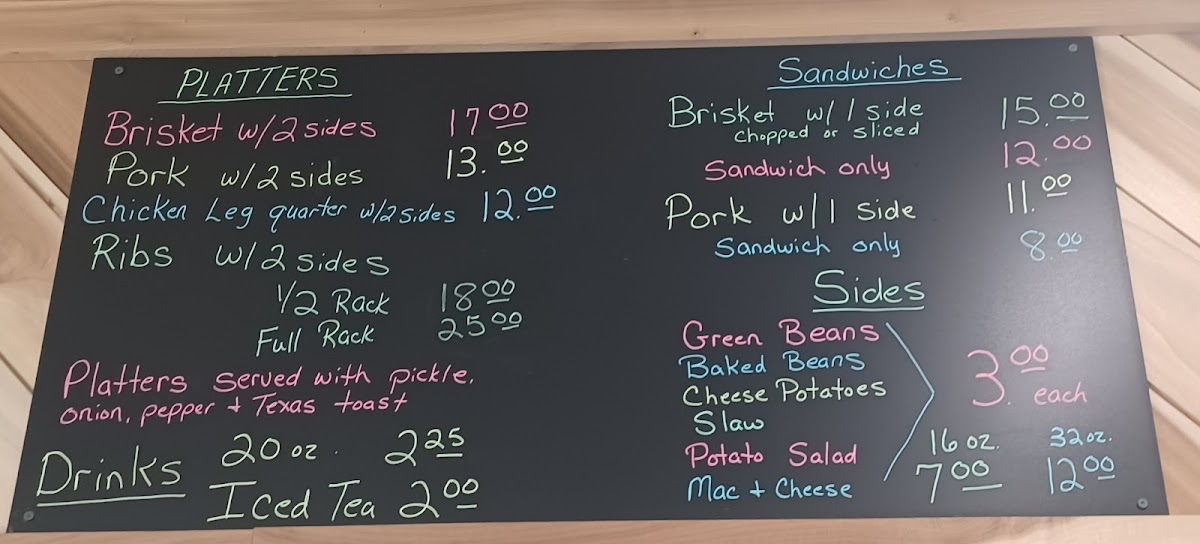 PLATTERS
Brisket w/2 sides 17 00
Pork w/2 sides 13.00
Chicken Leg quarter w/2 sides 12.00
Ribs w/2 sides
1/2 Rack 18 00
Full Rack 25 00
Platters served with pickle,
onion, pepper + Texas toast
Drinks 20 oz. 2 25
Iced Tea 2 00
Sandwiches
Brisket w/1 side 15.00
chopped or sliced
Sandwich only 12.00
Pork w/1 side 11.00
Sandwich only 8.00
Sides
Green Beans
Baked Beans
Cheese Potatoes
Slaw
Potato Salad
Mac + Cheese
3.00 each
16 oz. 32 oz.
7 00 12 00